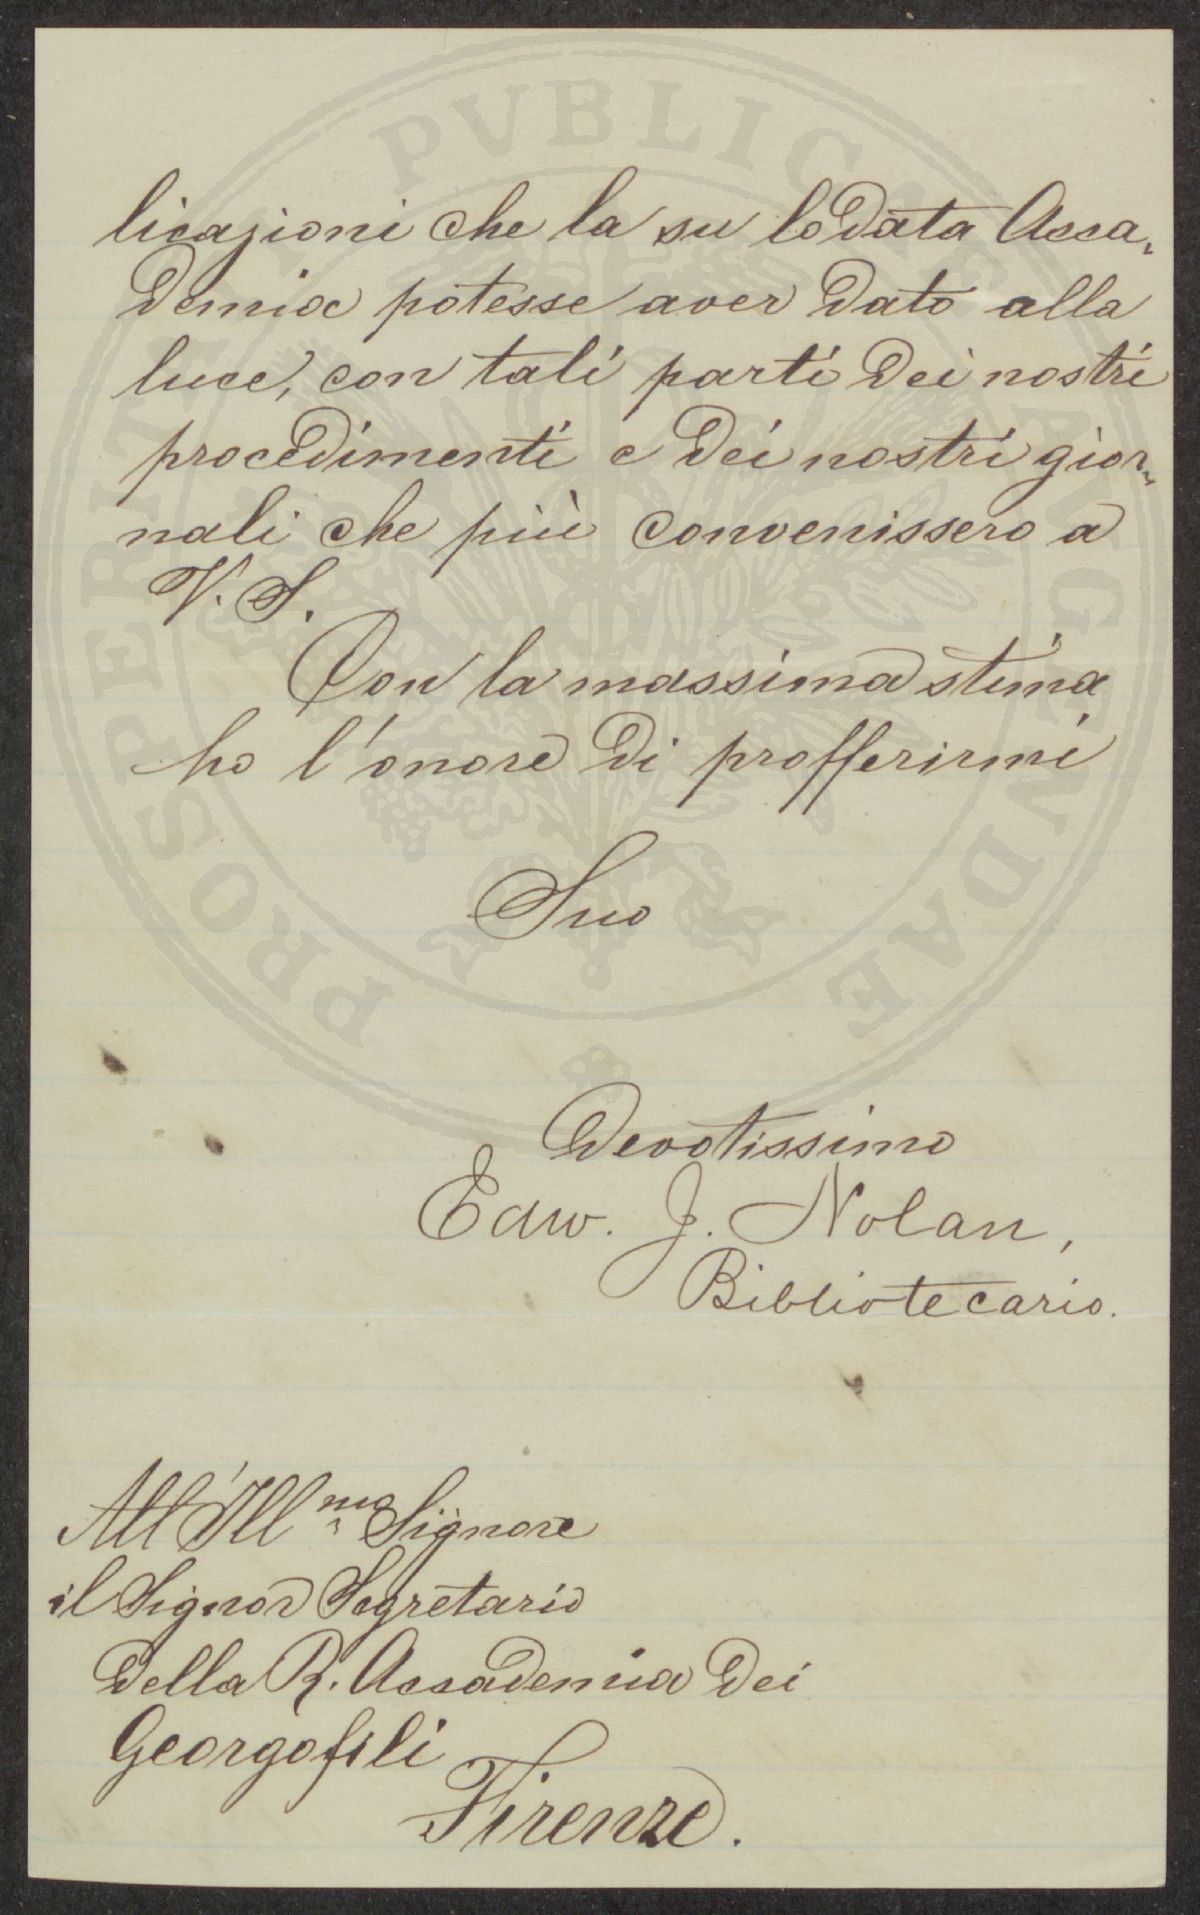 licazioni che la su lodata Acca-
demia potesse aver dato alla
luce, con tali parti dei nostri
procedimenti e dei nostri gior-
nali che più convenissero a
V. S.
Con la massima stima
ho l'onore di profferirmi
Suo
Devotissimo
Edw. J. Nolan,
Bibliotecario.
All'Ill.mo Signore
il Signor Segretario
della R. Accademia dei
Georgofili
Firenze.
PROSPERITATI PVBLICAE AVGENDAE